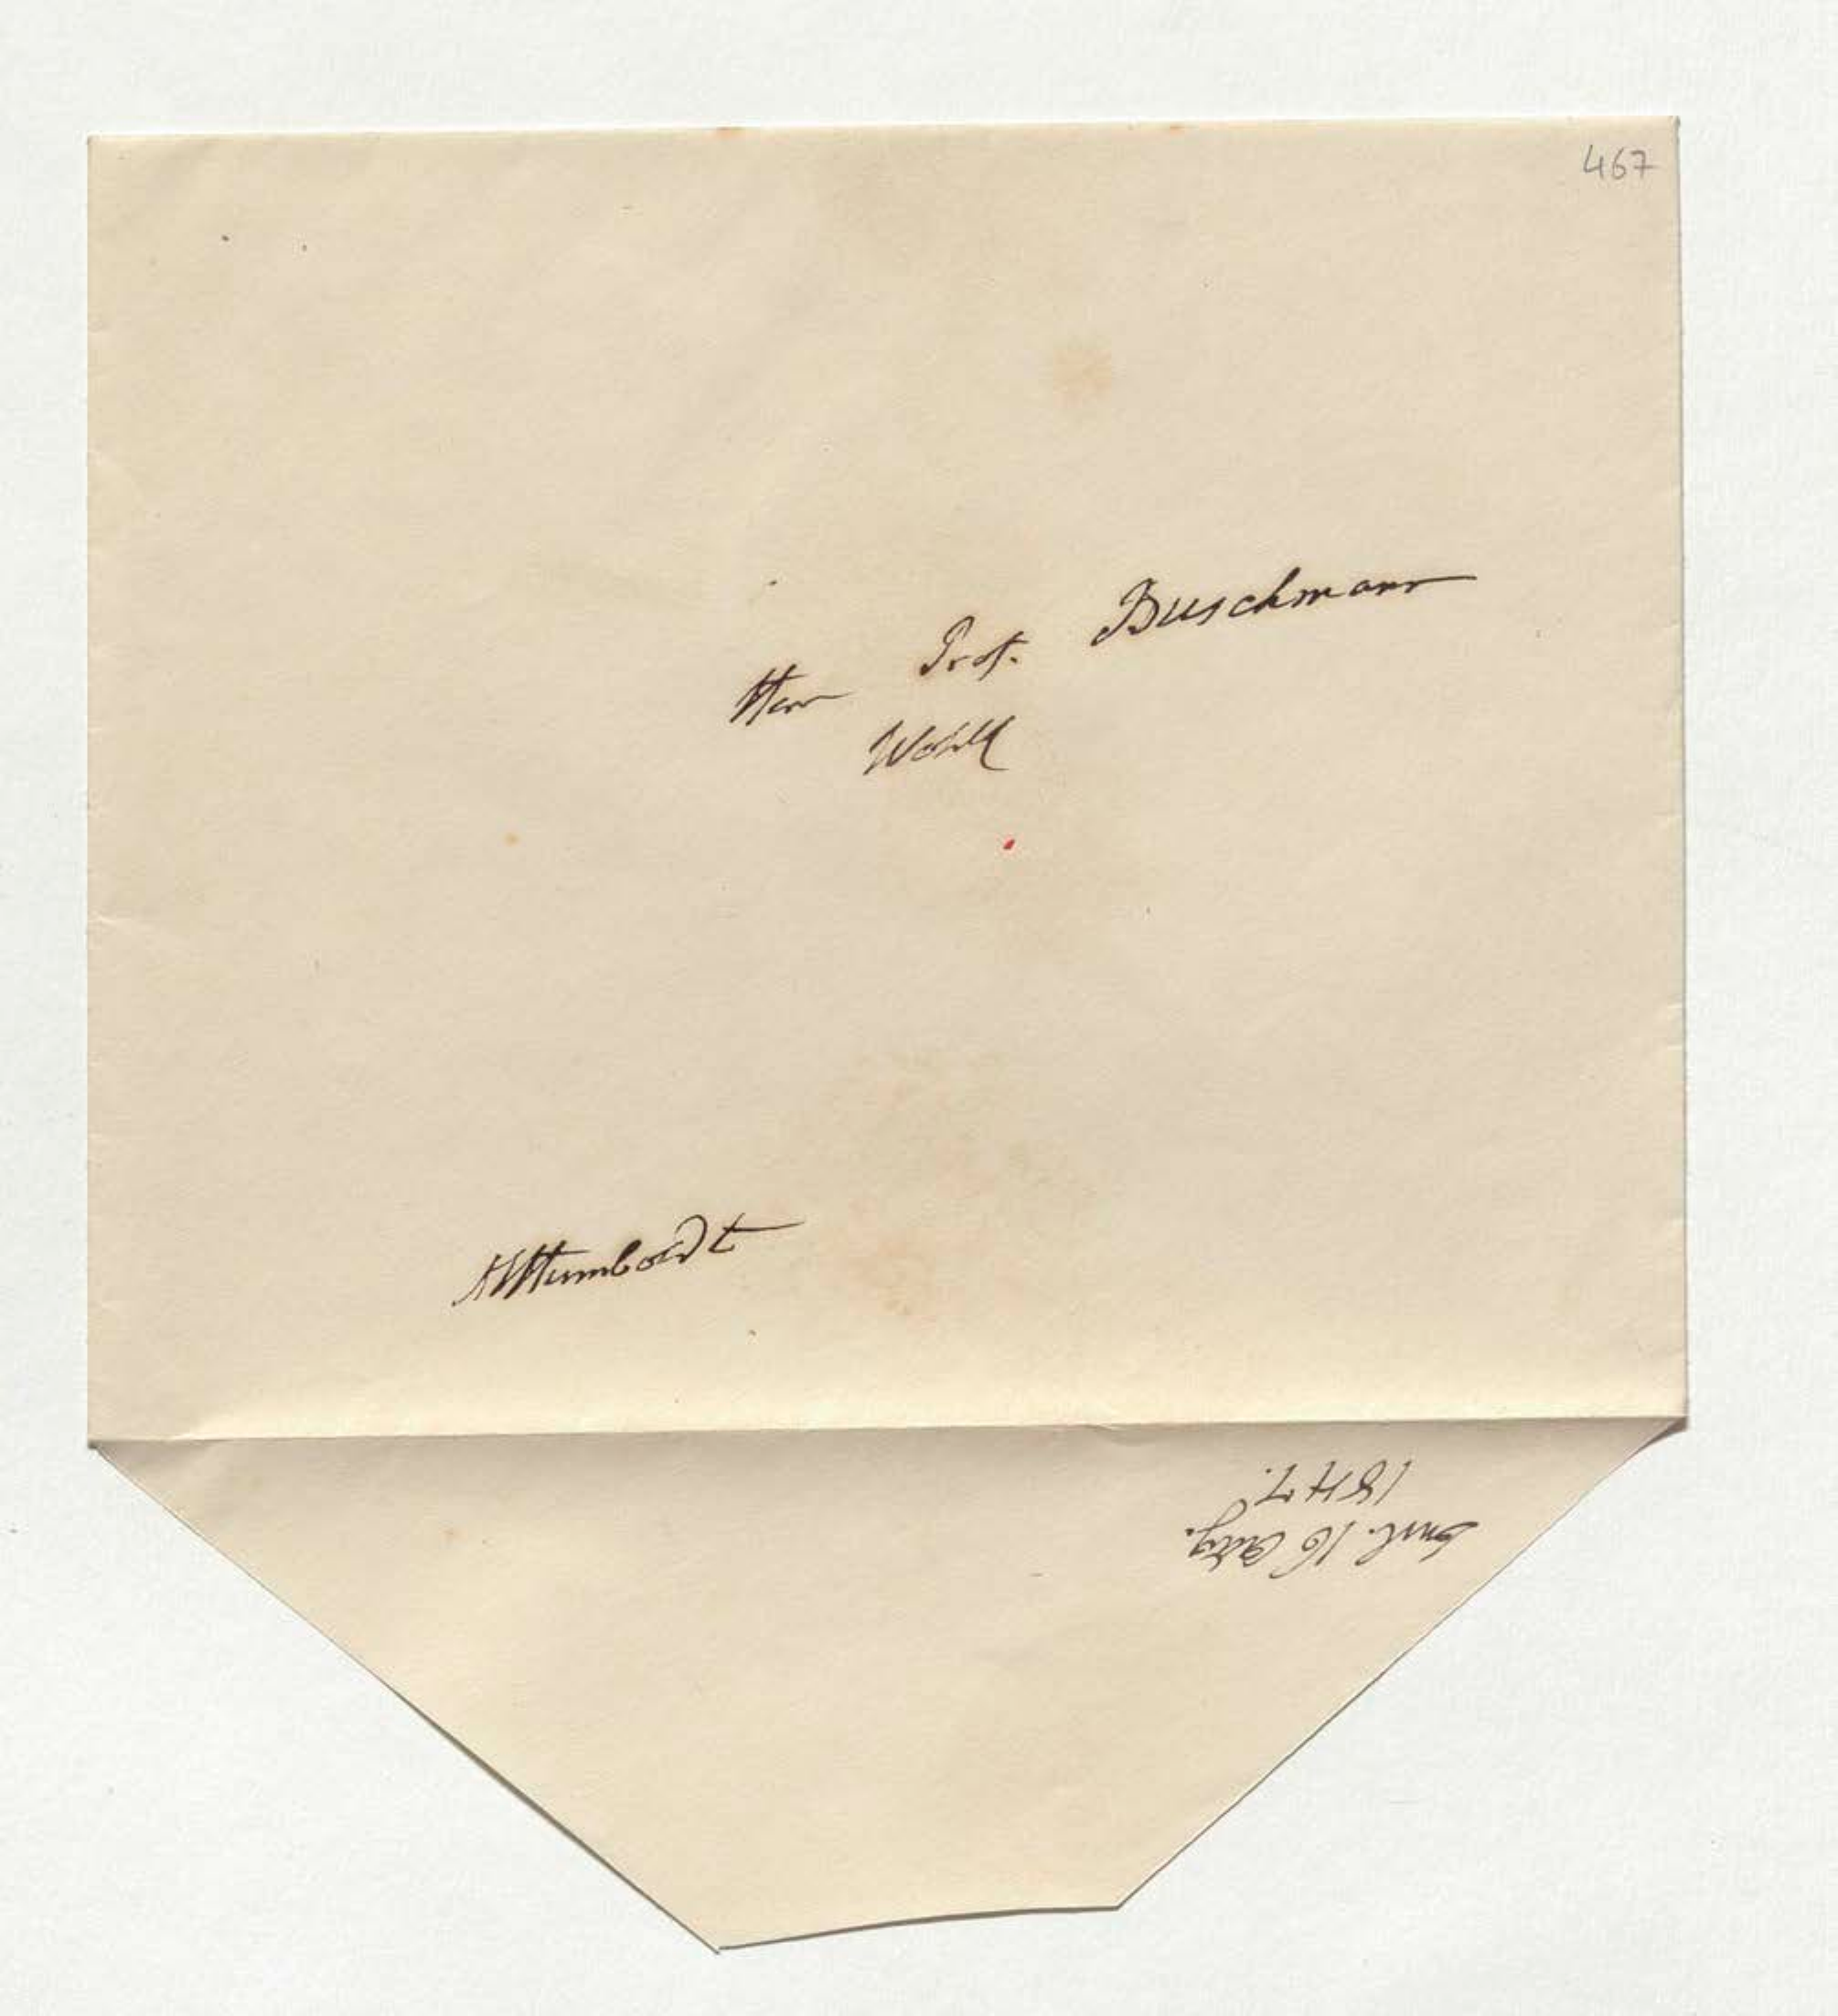 467
Herrn Prof. Buschmann
Wohlg
AvHumboldt
Emf. 16 Aug.
1847.